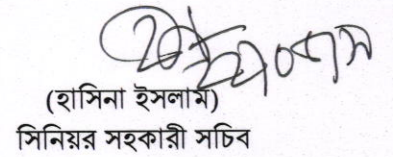 (হাসিনা ইসলাম)
সিনিয়র সহকারী সচিব